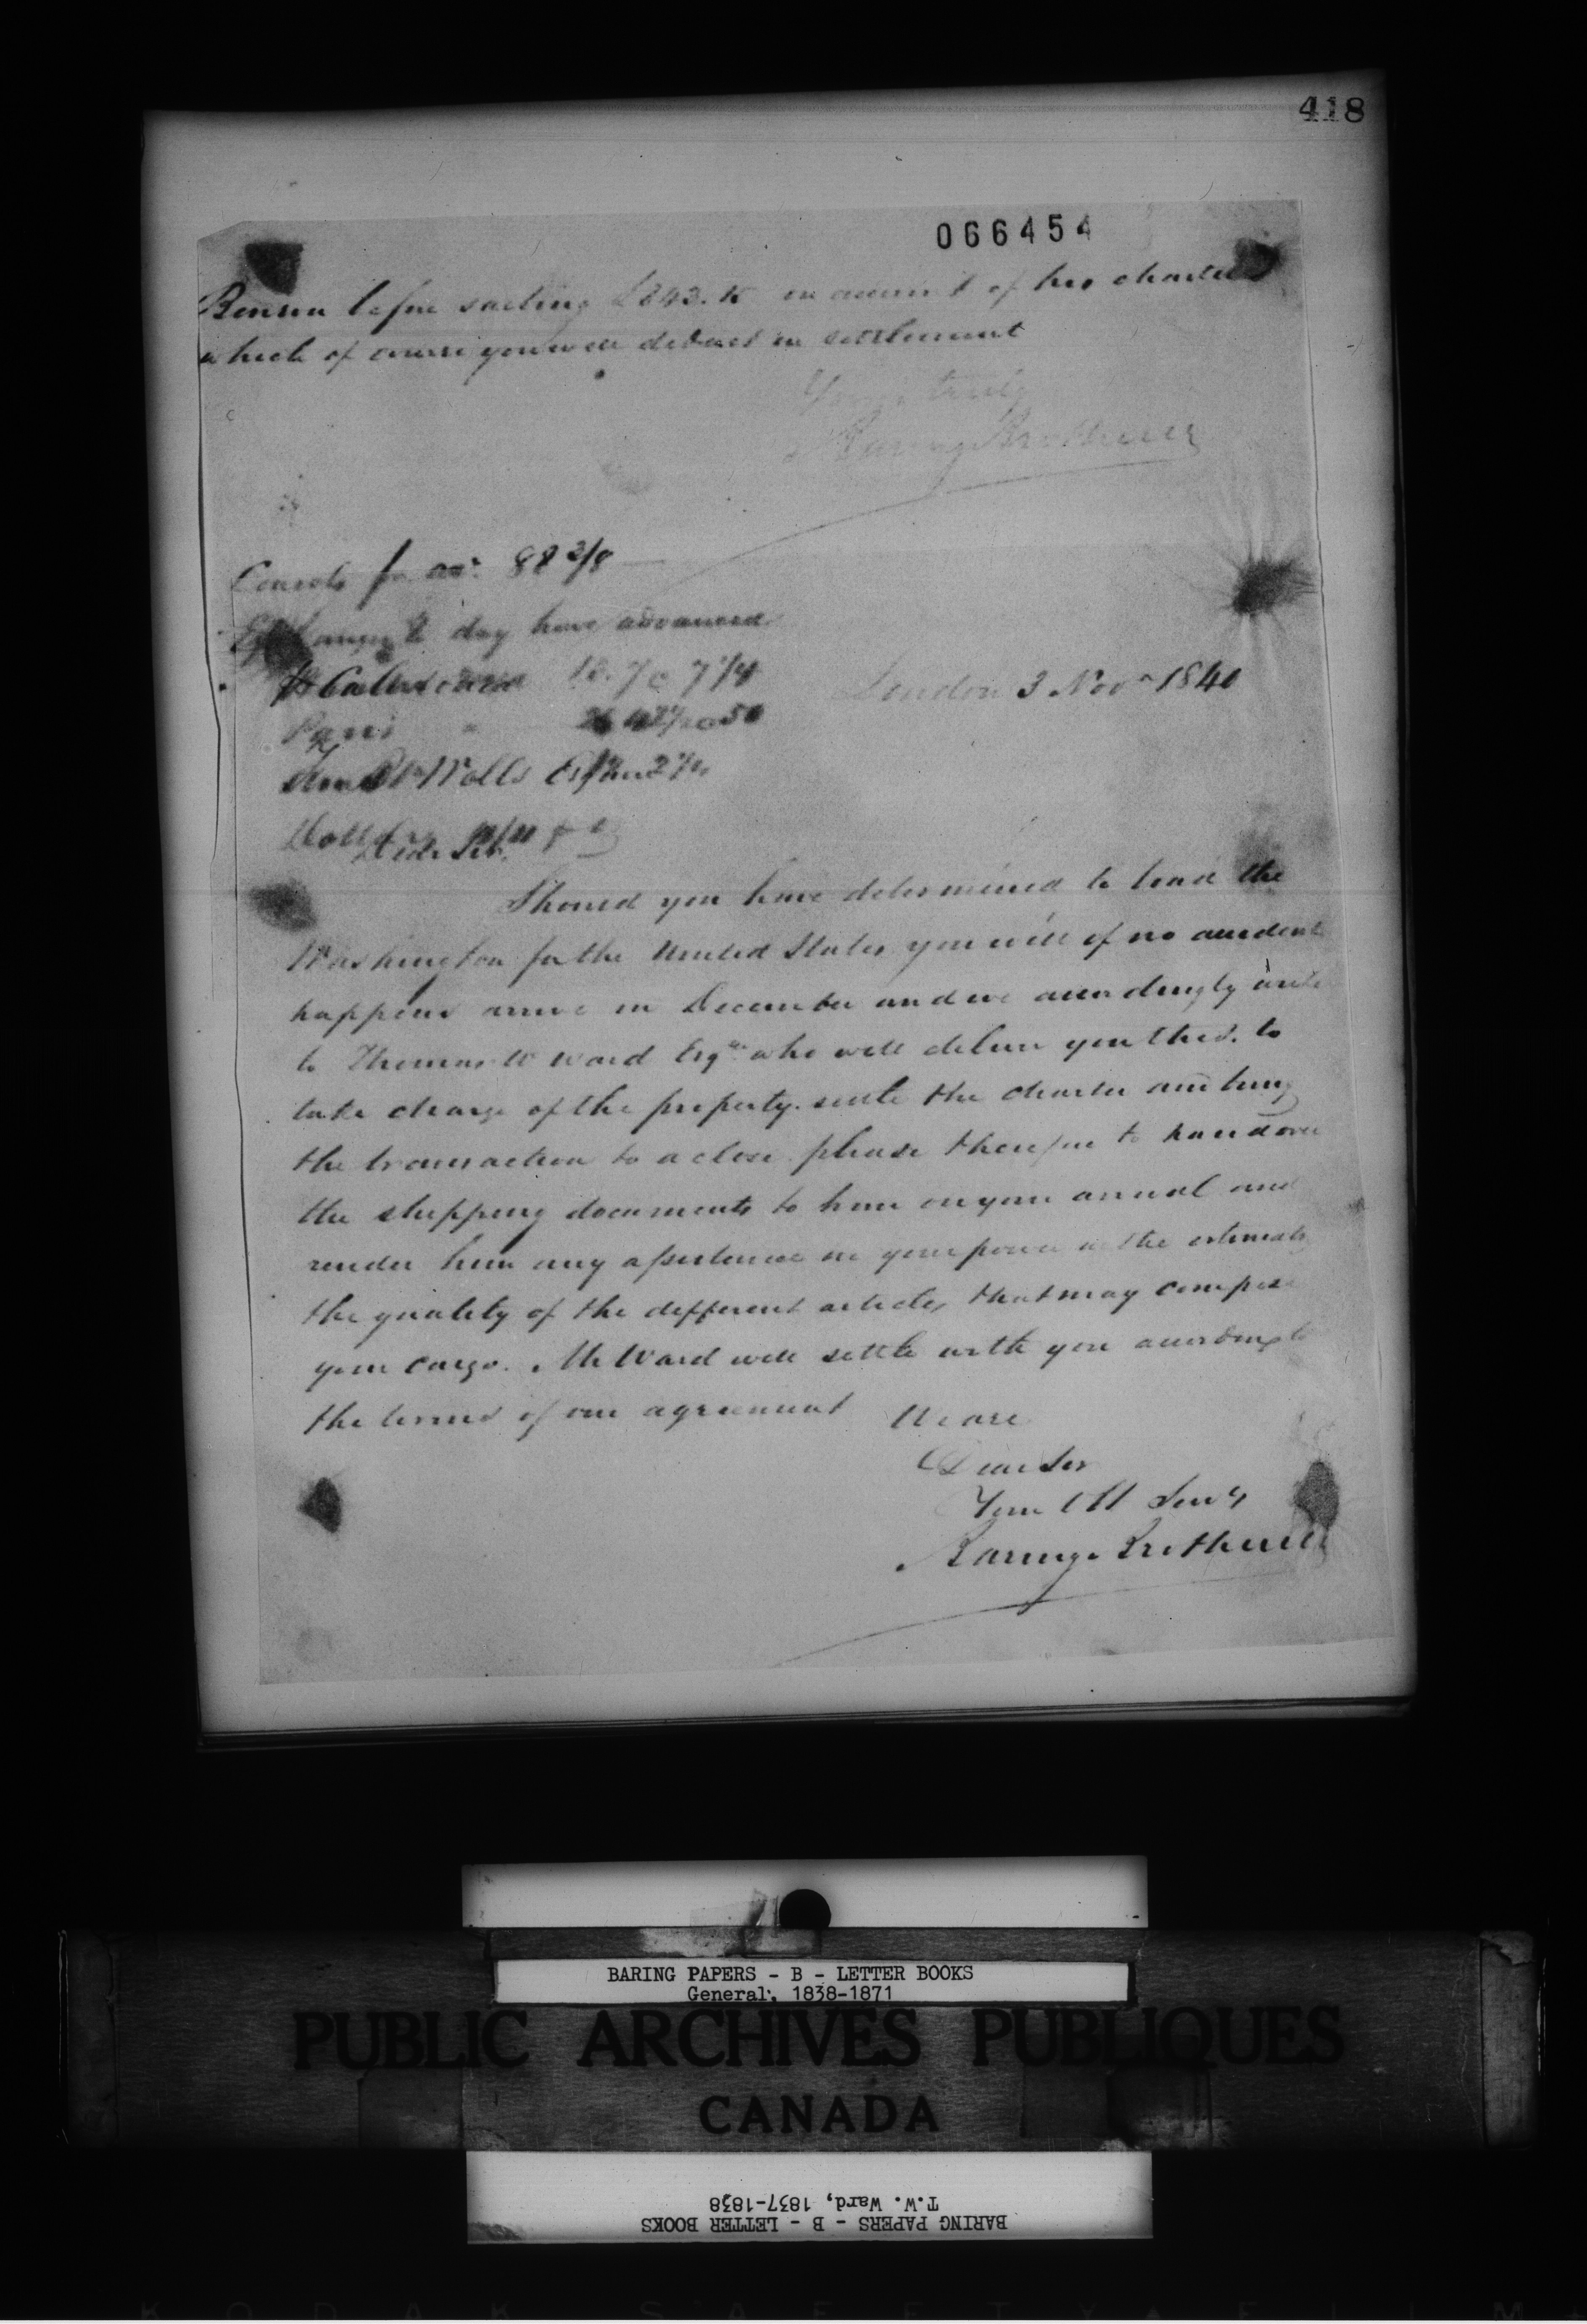 418
066454
Benson before sailing £843. 15 on account of his charter
which of course you will deduct in settlement
Yours truly
Baring Brothers
Consols for acc. 88 3/8
day have advanced
7 1/4
London 3 Novr 1840
Paris
Dear Sir.
Should you have determined to load the
Washington for the United States you will if no accident
happens arrive in December and we accordingly write
to Thomas W Ward Esqre who will deliver you this. to
take charge of the property. settle the charter and bring
the transaction to a close. please therefore to hand over
the shipping documents to him on your arrival and
render him any assistance in your power in the estimate
the quality of the different articles that may compose
your cargo. Mr Ward will settle with you according to
the terms of our agreement We are
Dear Sir
Your Servts
Baring Brothers
BARING PAPERS - B - LETTER BOOKS
General, 1838-1871
PUBLIC ARCHIVES PUBLIQUES
CANADA
BARING PAPERS - B - LETTER BOOKS
T.W. Ward, 1837-1838
KODAK SAFETY FILM